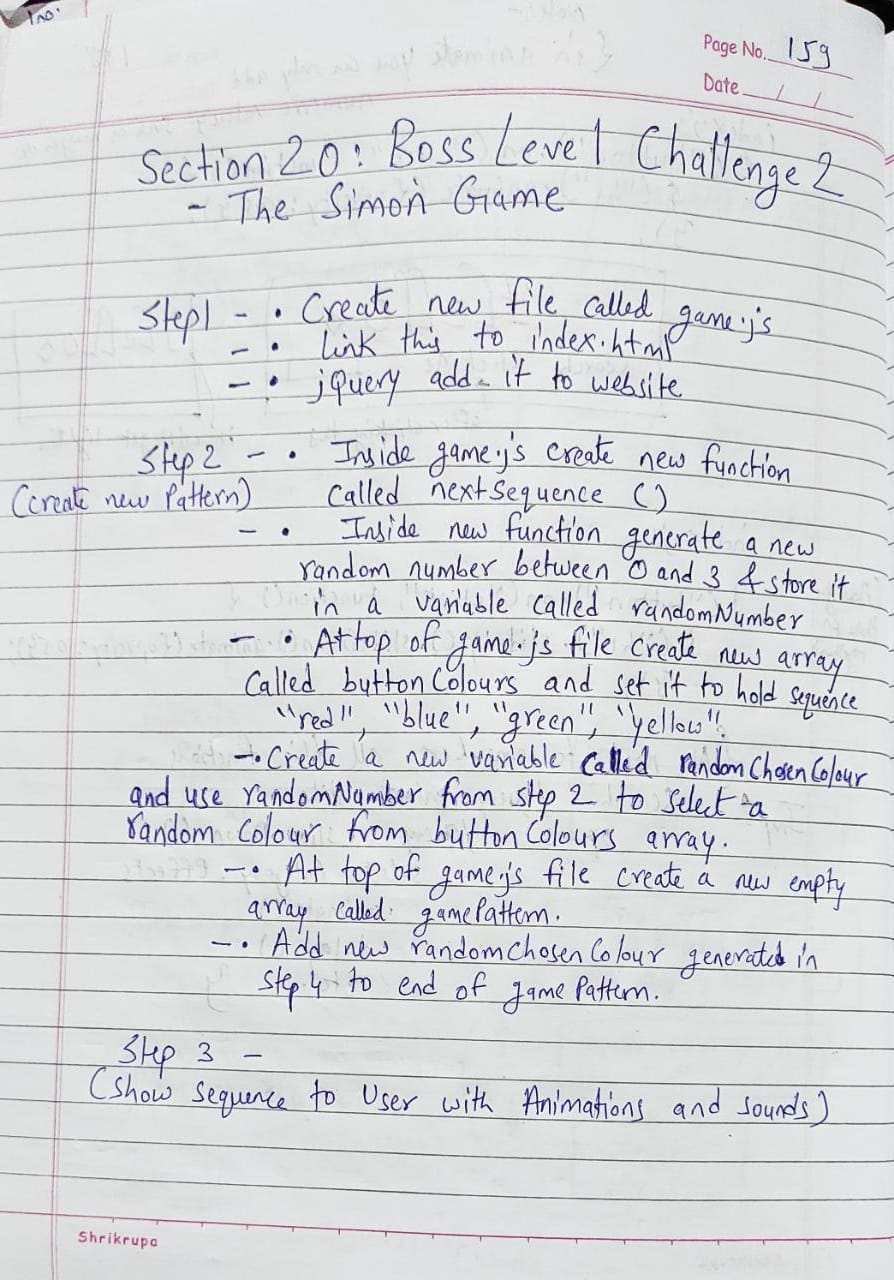 Page No. 159
Date / /
Section 20: Boss Level Challenge 2
- The Simon Game
Step1 - • Create new file called game.js
- • link this to index.html
- • jQuery add it to website
Step 2 - • Inside game.js create new function
(create new Pattern) called nextSequence ()
- • Inside new function generate a new
random number between 0 and 3 & store it
in a variable called randomNumber
- • At top of game.js file create new array
called buttonColours and set it to hold sequence
"red", "blue", "green", "yellow".
- • Create a new variable called randomChosenColour
and use randomNumber from step 2 to select a
random colour from buttonColours array.
- • At top of game.js file create a new empty
array called gamePattern.
- • Add new randomChosenColour generated in
step 4 to end of gamePattern.
Step 3 -
(show sequence to User with Animations and sounds)
Shrikrupa